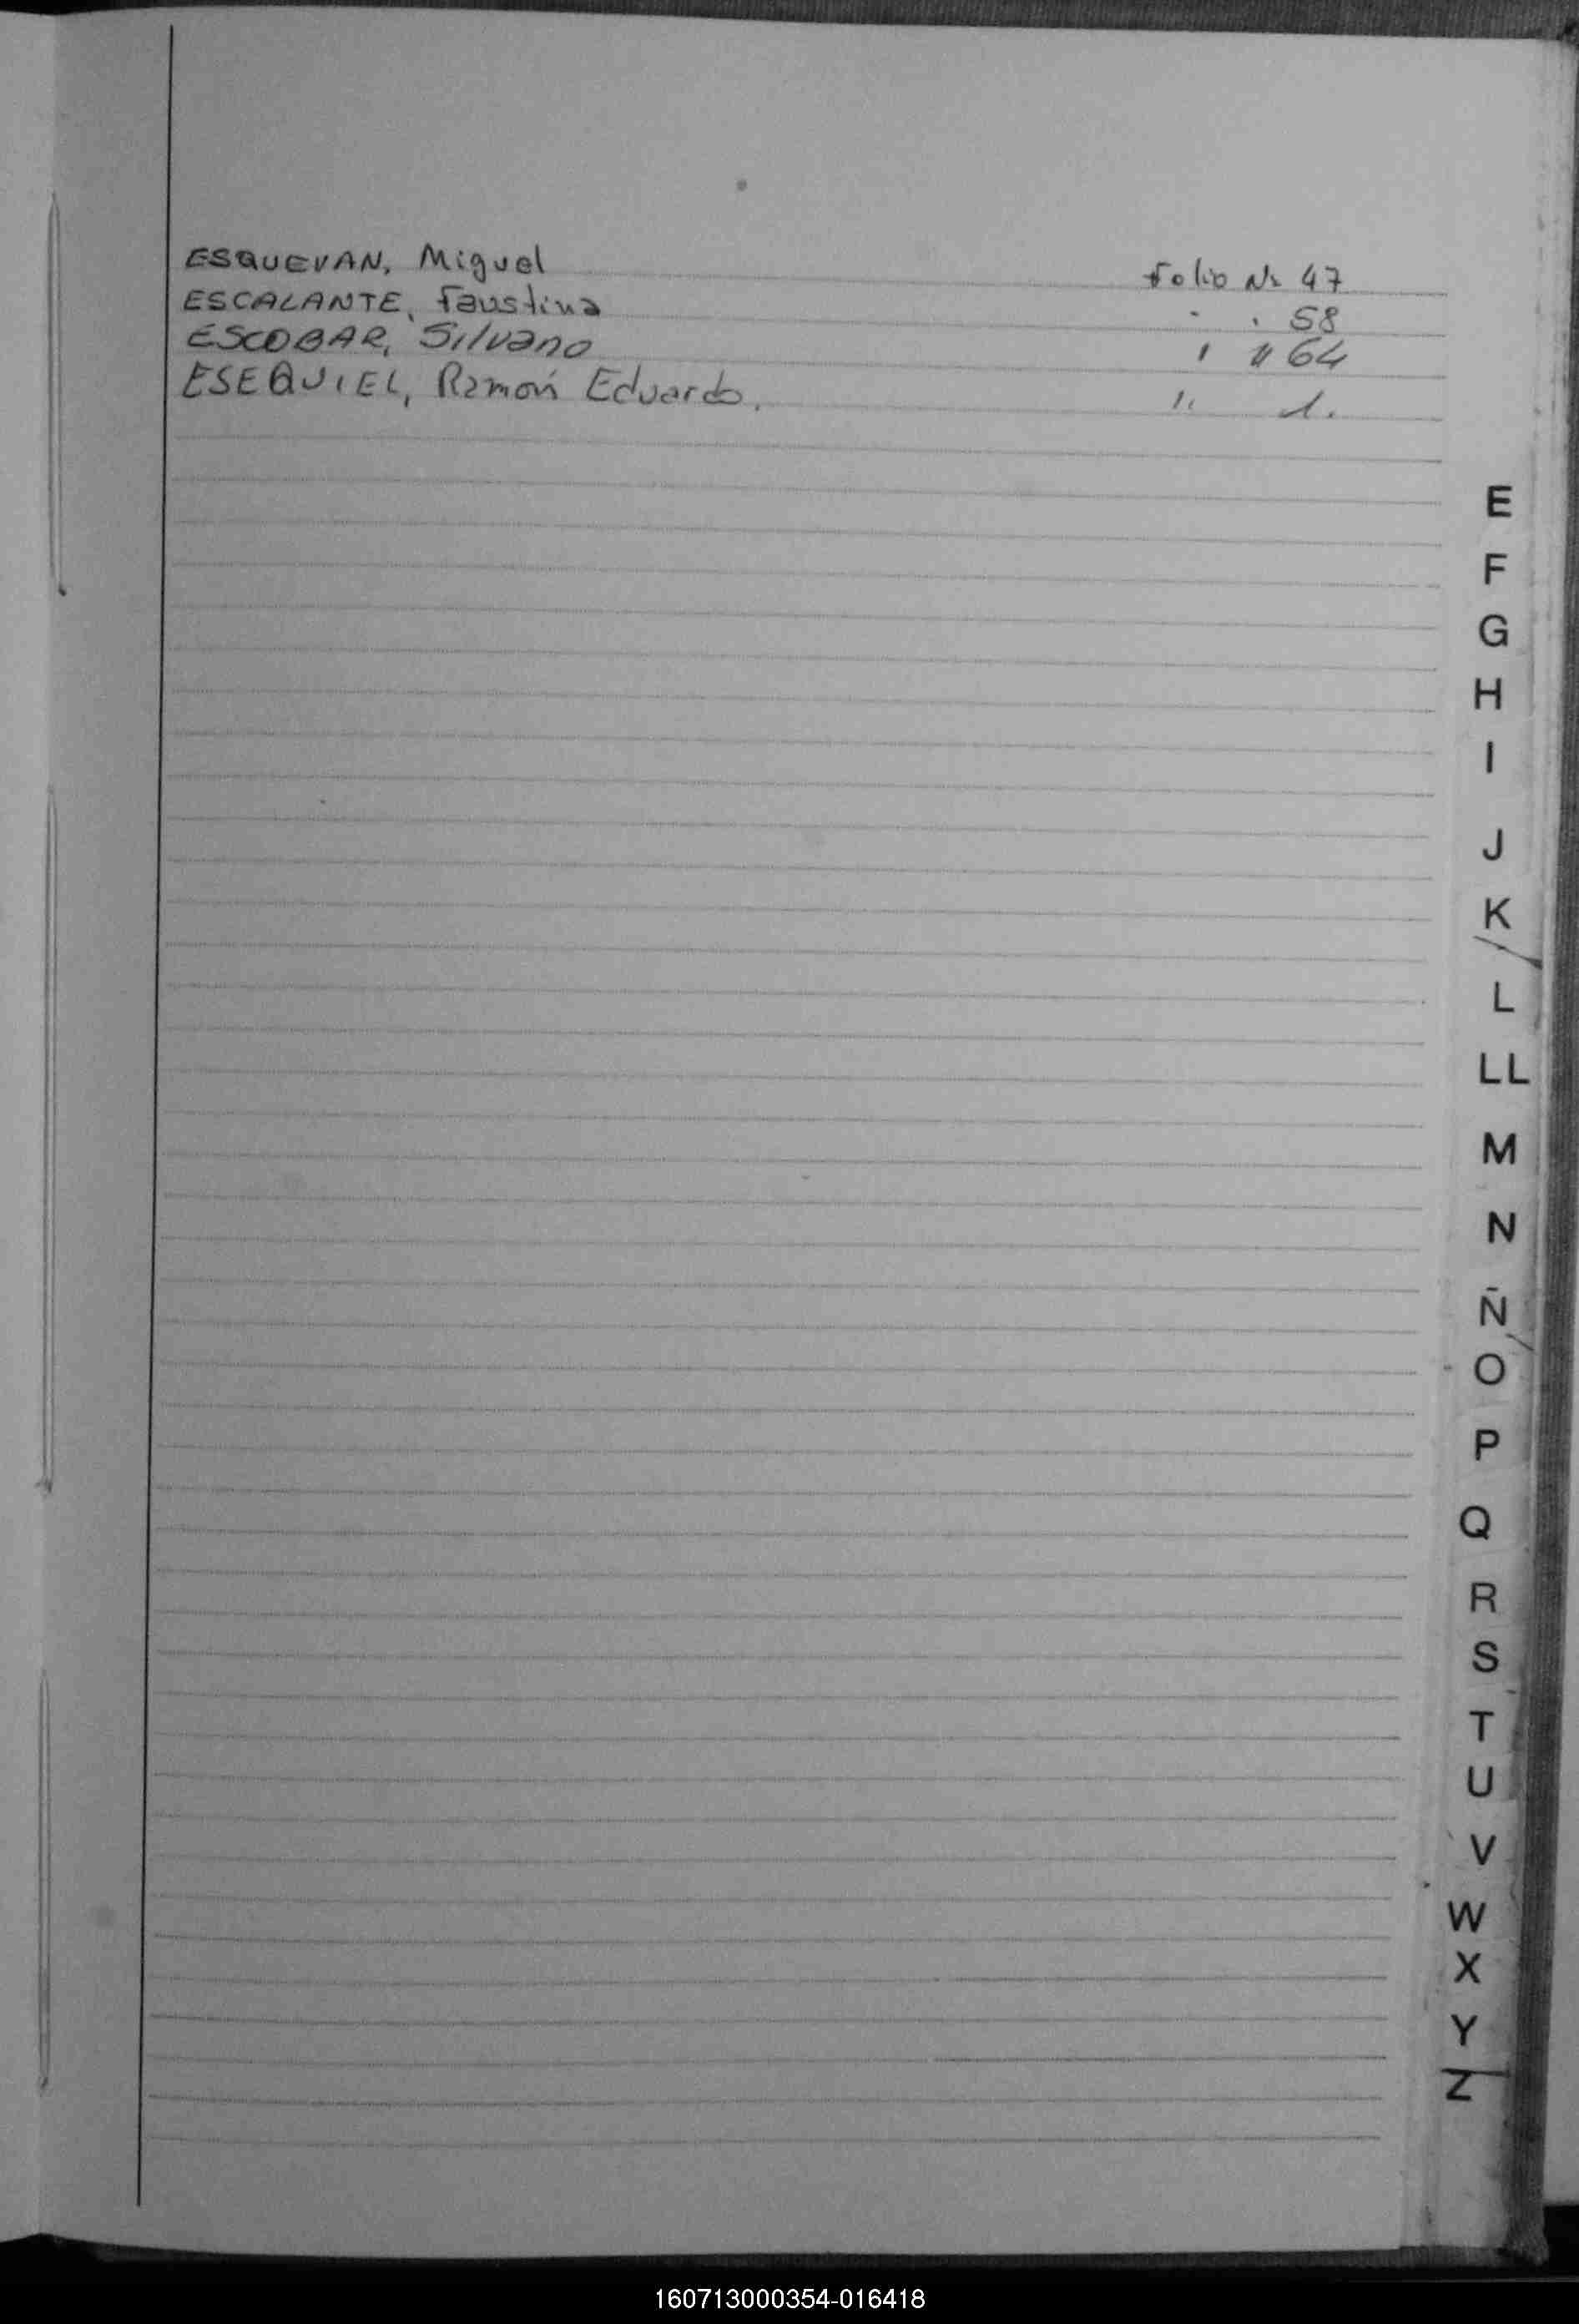 ESQUEVAN, Miguel Folio Nº 47
ESCALANTE, Faustina " " 58
ESCOBAR, Silvano " " 64
ESEQUIEL, Ramón Eduardo. " 1.
E
F
G
H
I
J
K
L
LL
M
N
Ñ
O
P
Q
R
S
T
U
V
W
X
Y
Z
160713000354-016418